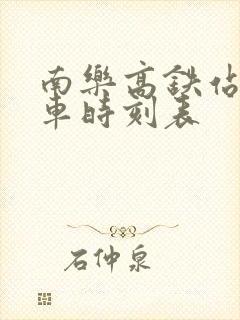 南樂高鉄佔
車時刻表
石仲泉